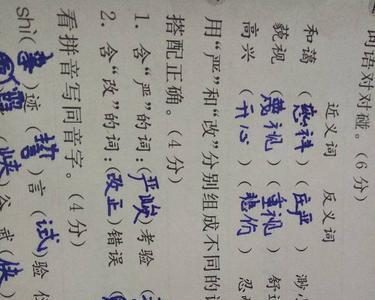 词语对对碰。(6分)
近义词 反义词
和蔼 ( ) (庄严) 渺小
藐视 (蔑视) (重视) 舒
高兴 (开心) (悲伤) 忍
用“严”和“改”分别组成不同的
搭配正确。(4分)
1. 含“严”的词:(严峻)考验
2. 含“改”的词:(改正)错误
看拼音写同音字。(4分)
shì(事)迹 (誓)言 (试)验
(峡)谷 武(侠)